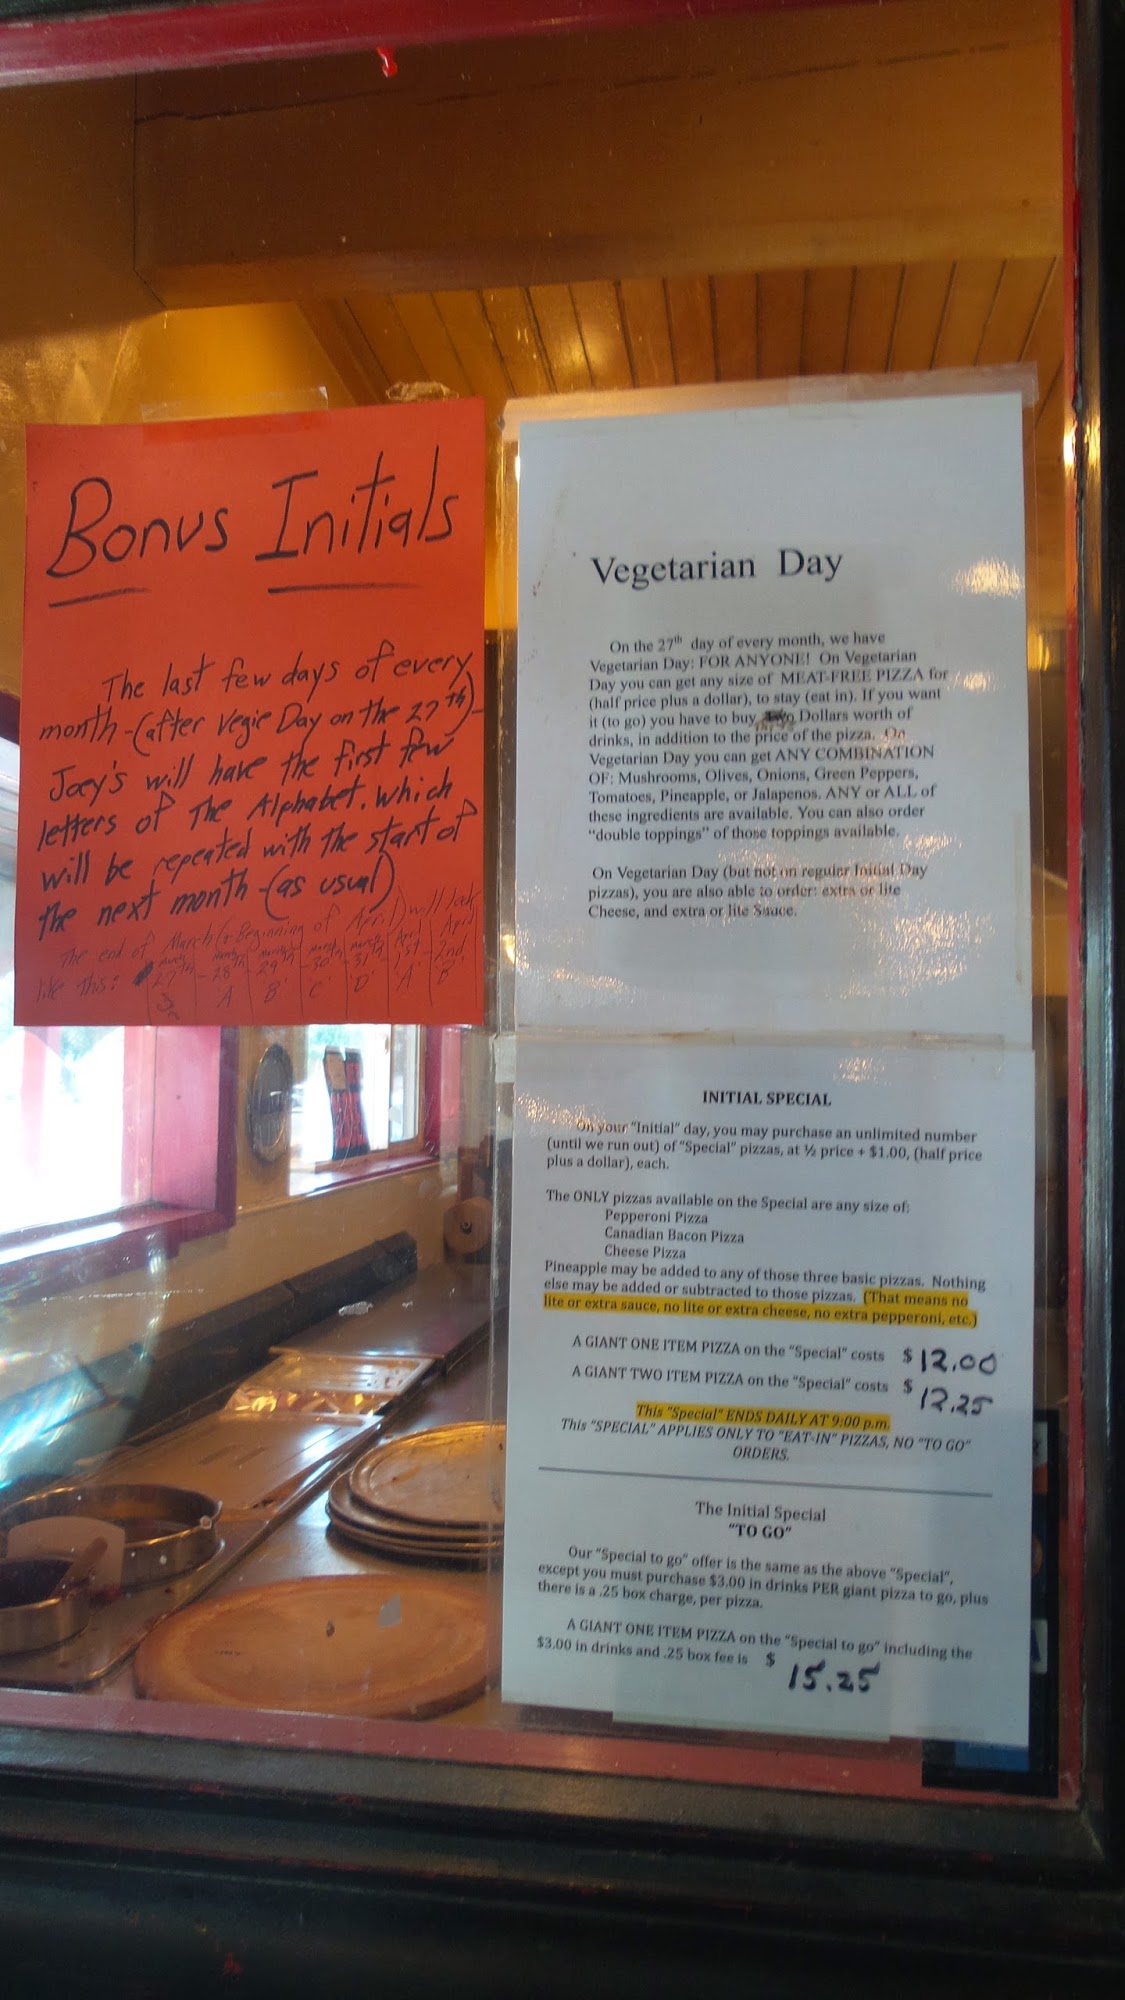 Bonus Initials
The last few days of every
month-(after Vegie Day on the 27th)-
Joey's will have the first few
letters of The Alphabet. which
will be repeated with the start of
the next month-(as usual)
The end of March (& Beginning of April) will look
like this:
March March March March March April April
27th - 28th 29th - 30th - 31th 1st - 2nd
A B C D A B
Vegetarian Day
On the 27th day of every month, we have
Vegetarian Day: FOR ANYONE! On Vegetarian
Day you can get any size of MEAT-FREE PIZZA for
(half price plus a dollar), to stay (eat in). If you want
it (to go) you have to buy Dollars worth of
drinks, in addition to the price of the pizza. On
Vegetarian Day you can get ANY COMBINATION
OF: Mushrooms, Olives, Onions, Green Peppers,
Tomatoes, Pineapple, or Jalapenos. ANY or ALL of
these ingredients are available. You can also order
"double toppings" of those toppings available.
On Vegetarian Day (but not on regular Initial Day
pizzas), you are also able to order: extra or lite
Cheese, and extra or lite Sauce.
INITIAL SPECIAL
On your "Initial" day, you may purchase an unlimited number
(until we run out) of "Special" pizzas, at ½ price + $1.00, (half price
plus a dollar), each.
The ONLY pizzas available on the Special are any size of:
Pepperoni Pizza
Canadian Bacon Pizza
Cheese Pizza
Pineapple may be added to any of those three basic pizzas. Nothing
else may be added or subtracted to those pizzas. (That means no
lite or extra sauce, no lite or extra cheese, no extra pepperoni, etc.)
A GIANT ONE ITEM PIZZA on the "Special" costs $ 12.00
A GIANT TWO ITEM PIZZA on the "Special" costs $ 12.25
This "Special" ENDS DAILY AT 9:00 p.m.
This "SPECIAL" APPLIES ONLY TO "EAT-IN" PIZZAS, NO "TO GO"
ORDERS.
The Initial Special
"TO GO"
Our "Special to go" offer is the same as the above "Special",
except you must purchase $3.00 in drinks PER giant pizza to go, plus
there is a .25 box charge, per pizza.
A GIANT ONE ITEM PIZZA on the "Special to go" including the
$3.00 in drinks and .25 box fee is $ 15.25